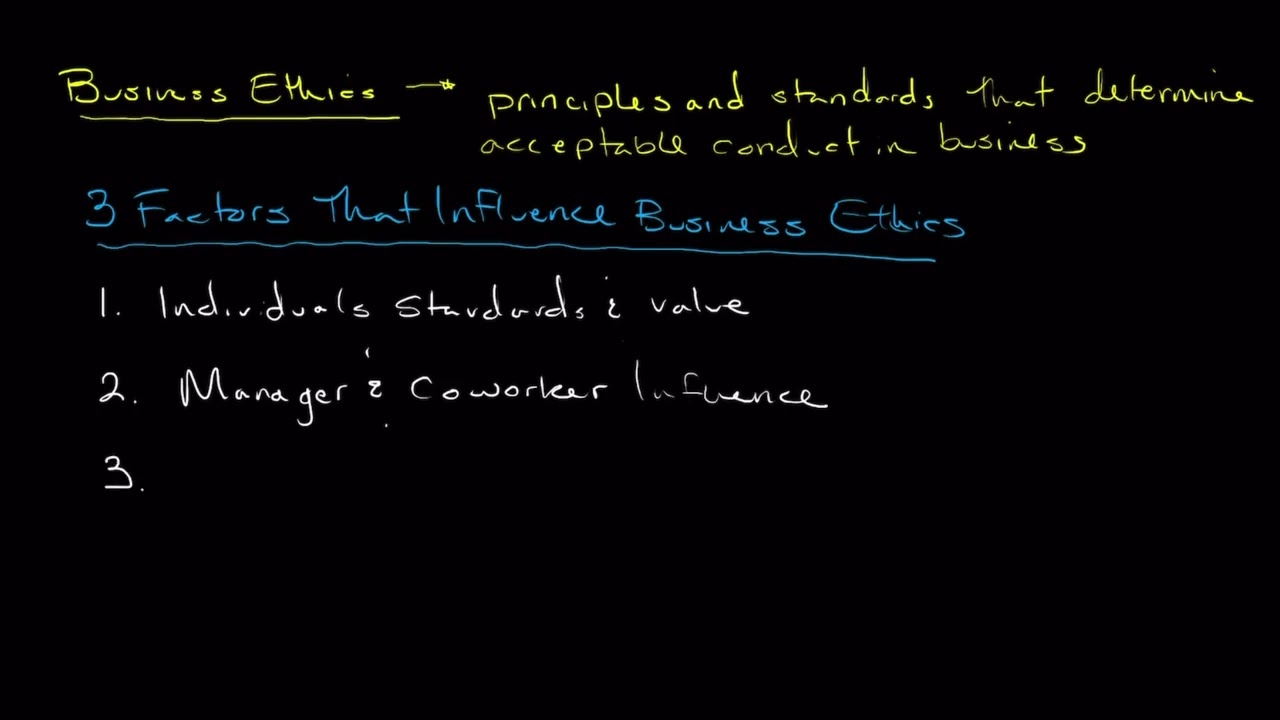 Business Ethics → principles and standards that determine
acceptable conduct in business
3 Factors That Influence Business Ethics
1. Individuals Standards & value
2. Manager & Coworker Influence
3.